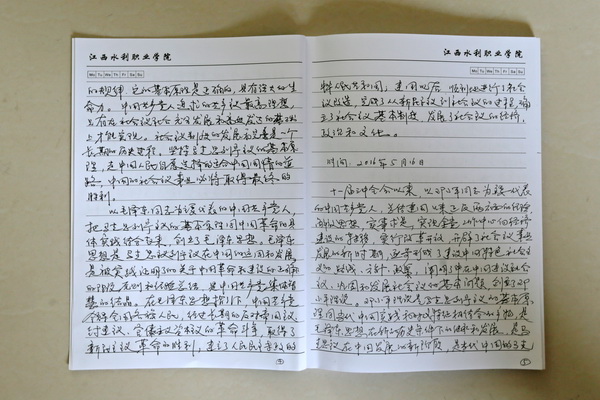 江西水利职业学院
Mo Tu We Th Fr Sa Su
的规律,它的基本原理是正确的,具有强大的生
命力。中国共产党人追求的共产主义最高理想,
只有在社会主义社会充分发展和高度发达的基础
上才能实现。社会主义制度的发展和完善是一个
长期的历史过程。坚持马克思列宁主义的基本原
理,走中国人民自愿选择的适合中国国情的道
路,中国的社会主义事业必将取得最终的
胜利。
以毛泽东同志为主要代表的中国共产党人,
把马克思列宁主义的基本原理同中国革命的具
体实践结合起来,创立了毛泽东思想。毛泽东
思想是马克思列宁主义在中国的运用和发展,
是被实践证明了的关于中国革命和建设的正确
的理论原则和经验总结,是中国共产党集体智
慧的结晶。在毛泽东思想指引下,中国共产党
领导全国各族人民,经过长期的反对帝国主义、
封建主义、官僚资本主义的革命斗争,取得了
新民主主义革命的胜利,建立了人民民主专政的
江西水利职业学院
Mo Tu We Th Fr Sa Su
人民共和国;建国以后,顺利地进行了社会主
义改造,完成了从新民主主义到社会主义的过渡,确
立了社会主义基本制度,发展了社会主义的经济、
政治和文化。
时间:2016年5月16日
十一届三中全会以来,以邓小平同志为主要代表
的中国共产党人,总结建国以来正反两方面的经验
解放思想,实事求是,实现全党工作中心向经济
建设的转移,实行改革开放,开辟了社会主义事业
发展的新时期,逐步形成了建设中国特色社会主
义的路线、方针、政策,阐明了在中国建设社会主
义、巩固和发展社会主义的基本问题,创立了邓
小平理论。邓小平理论是马克思列宁主义的基本原
理同当代中国实践和时代特征相结合的产物,是
毛泽东思想在新的历史条件下的继承和发展,是马
思主义在中国发展的新阶段,是当代中国的马克